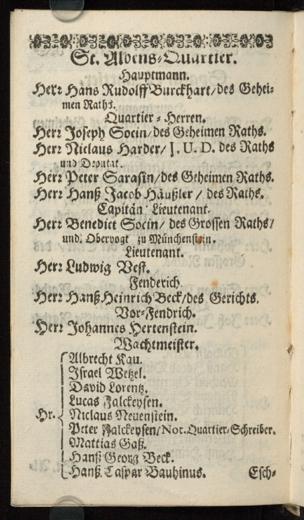 St. Albens-Quartier.
Hauptmann.
Herr Hans Rudolff Burckhart/des Gehei-
men Raths.
Quartier-Herren.
Herr Joseph Socin/des Geheimen Raths.
Herr Niclaus Harder/J. U. D. des Raths
und Deputat.
Herr Peter Sarasin/des Geheimen Raths.
Herr Hanß Jacob Häußler / des Raths.
Capitän Lieutenant.
Herr Benedict Socin/ des Grossen Raths/
und Obervogt zu Münchenstein.
Lieutenant.
Herr Ludwig Vest.
Fenderich.
Herr Hanß Heinrich Beck/des Gerichts.
Vor-Fendrich.
Herr Johannes Hertenstein.
Wachtmeister.
Albrecht Kau.
Israel Wetzel.
David Lorentz.
Lucas Falckeysen.
Hr. Niclaus Neuenstein.
Peter Falckeysen/Not. Quartier-Schreiber.
Mattias Gaß.
Hanß Georg Beck.
Hanß Caspar Bauhinus.
Esch-